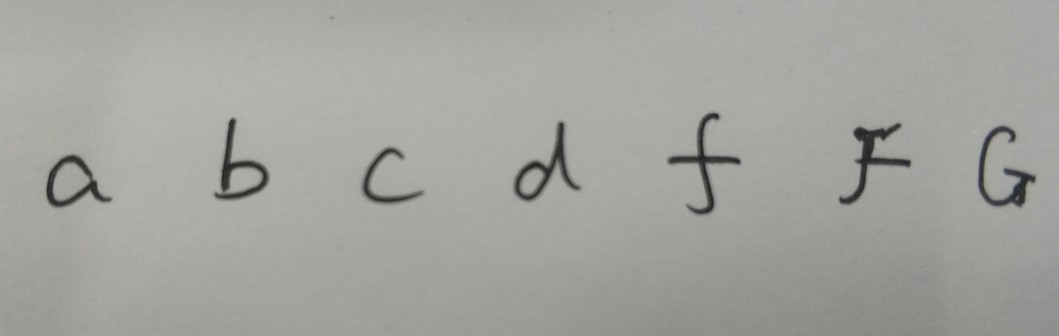 a b c d f F G